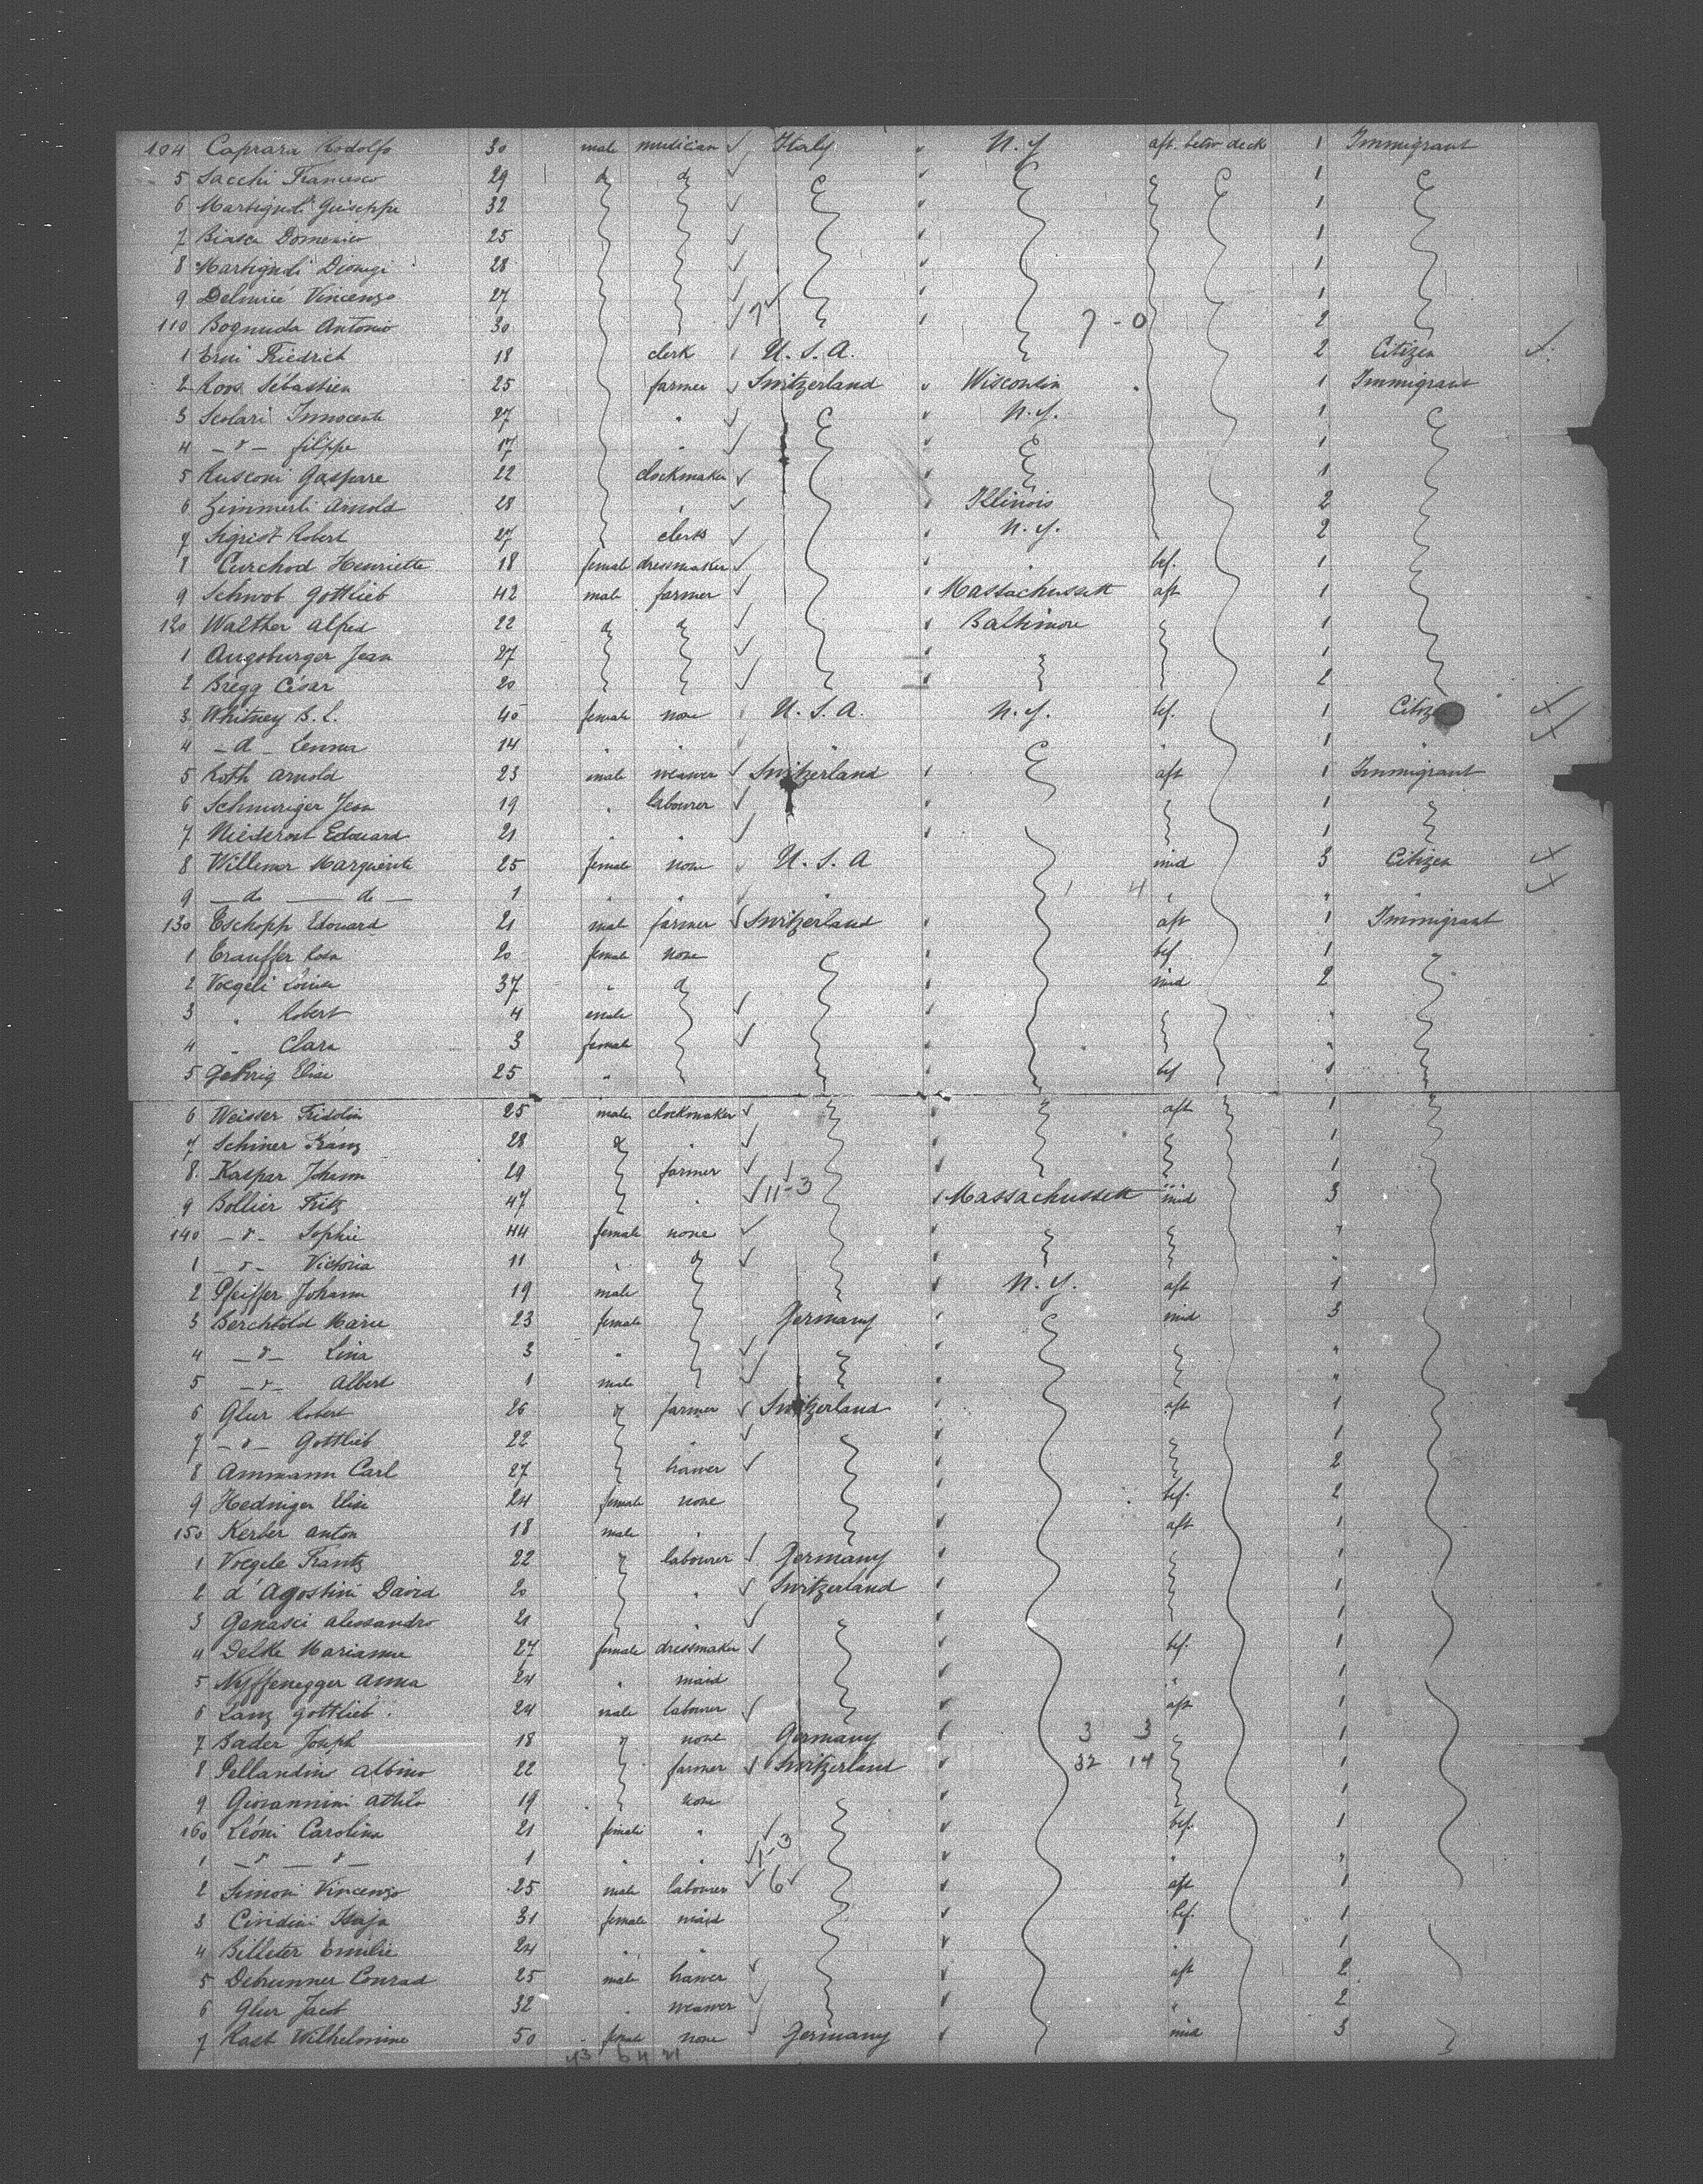 104 Caprara Rodolfo 30 male musician Italy N.Y. aft. betw deck 1 Immigrant
5 Sacchi Francesco 29 1
6 Martignoli Guiseppe 32 1
7 Biasca Domenico 25 1
8 Martignoli Dionigi 28 1
9 Vincenzo 27 1
110 Bognuda Antonio 30 2 7-0
1 Erni Friedrich 18 clerk U.S.A. 2 Citizen
2 Sébastien 25 farmer Switzerland Wisconsin 1 Immigrant
3 Scolari Innocente 27 " N.Y. 1
4 -d- filippe 17 " 1
5 Rusconi Gaspare 22 clockmaker 1
6 Zimmerli Arnold 28 " Illinois 2
7 Sigrist Robert 27 clerk N.Y. 2
8 Curchod Henriette 18 female dressmaker bef. 1
9 Schwob Gottlieb 42 male farmer Massachussett aft 1
120 Walther Alfred 22 do do Baltimore 1
1 Augsburger Jean 27 1
2 Bregg César 20 2
3 Whitney B. L. 45 female none U.S.A. N.Y. bef. 1 Citizen
4 -d- Lenna 14 " " " " 1 "
5 Roth Arnold 23 male weawer Switzerland aft 1 Immigrant
6 Schmuriger Jean 19 " labourer 1
7 Niederost Edouard 21 " " 1
8 Willener Marguerite 25 female none U.S.A mid 3 Citizen
9 — do — do — 1 " " " 4 " " "
130 Tschopp Edouard 21 male farmer Switzerland aft 1 Immigrant
1 Trauffer Rosa 20 female none bef 1
2 Voegeli Louise 37 " do mid 2
3 " Robert 4 male "
4 " Clara 3 female "
5 Gehrig Elise 25 " bef 1
6 Weisser Fridolin 25 male clockmaker aft 1
7 Schiner Franz 28 do " 1
8 Kaspar Johann 29 farmer 1
9 Bollier Fritz 47 " 11-3 Massachussett mid 3
140 -d- Sophie 44 female none "
1 -d- Victoria 11 " do "
2 Pfeiffer Johann 19 male N.Y. aft 1
3 Berchtold Marie 23 female Germany mid 3
4 -d- Lina 3 " "
5 -d- Albert 1 male "
6 Glur Robert 26 do farmer Switzerland aft 1
7 -d- Gottlieb 22 " 1
8 Ammann Carl 27 2
9 Hediniger Elise 24 female none bef. 2
150 Kerler Anton 18 male " aft 1
1 Voegele Frantz 22 labourer Germany 1
2 d'Agostini David 20 " Switzerland 1
3 Genasci Alessandro 21 " 1
4 Delke Marianne 27 female dressmaker bef. 1
5 Nyffenegger Anna 24 " maid " 1
6 Lanz Gottlieb 24 male labourer aft 1
7 Bader Joseph 18 do none Germany 3 3 1
8 Pellandini Albino 22 farmer Switzerland 32 14 1
9 Giovannini Attilo 19 none 1
160 Léoni Carolina 21 female " bef. 1
1 -d- -d- 1 " " 1-3 " "
2 Simoni Vincenzo 25 male labourer 6 aft 1
3 Cividini 31 female maid bef. 1
4 Billeter Emilie 24 " " " 1
5 Debrunner Conrad 25 male aft 2
6 Glur Jacob 32 " weawer " 2
7 Rast Wilhelmine 50 female none Germany mid 3
43 64 21